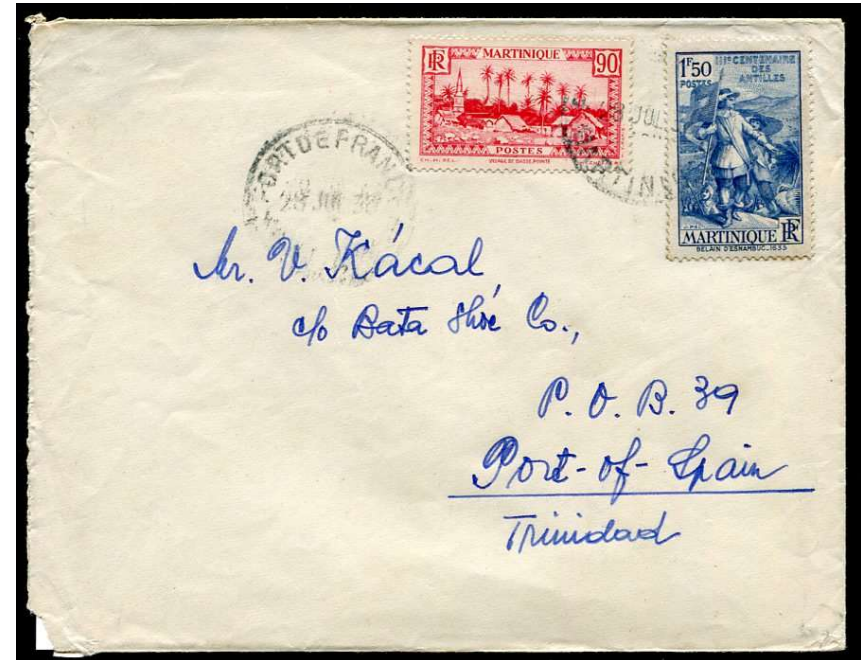 RF MARTINIQUE 90
POSTES
VILLAGE DE BASSE POINTE
1F50
POSTES
IIIE CENTENAIRE
DES
ANTILLES
MARTINIQUE RF
BELAIN D'ESNAMBUC_1635
FORT DE FRANCE
28 JUI 38
Mr. V. Kácal
c/o Bata Shoe Co.,
P. O. B. 39
Port-of-Spain
Trinidad